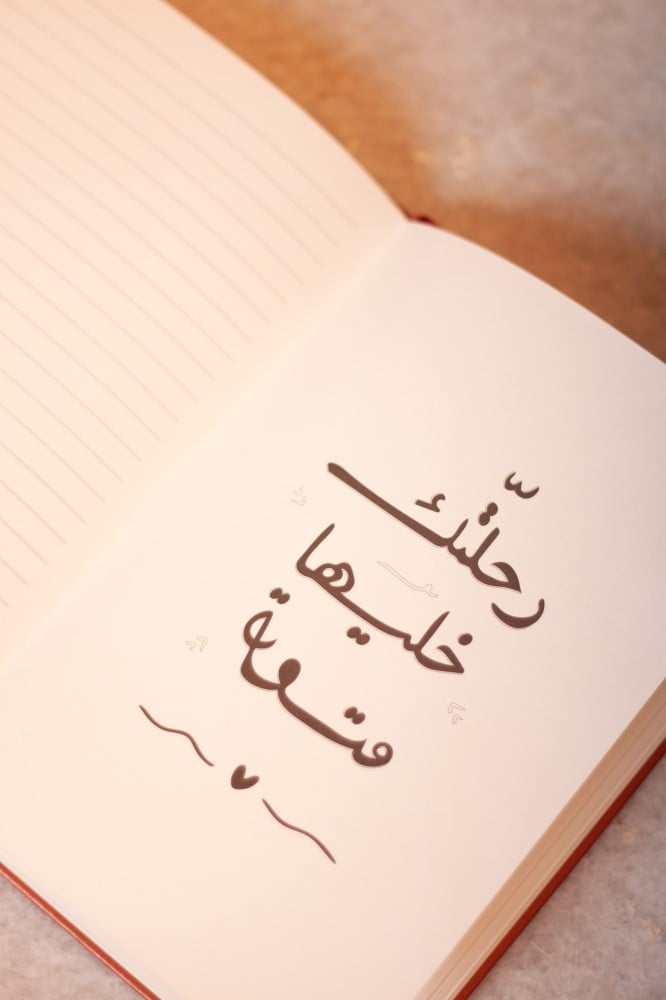 رحلتك
خليها
متعة